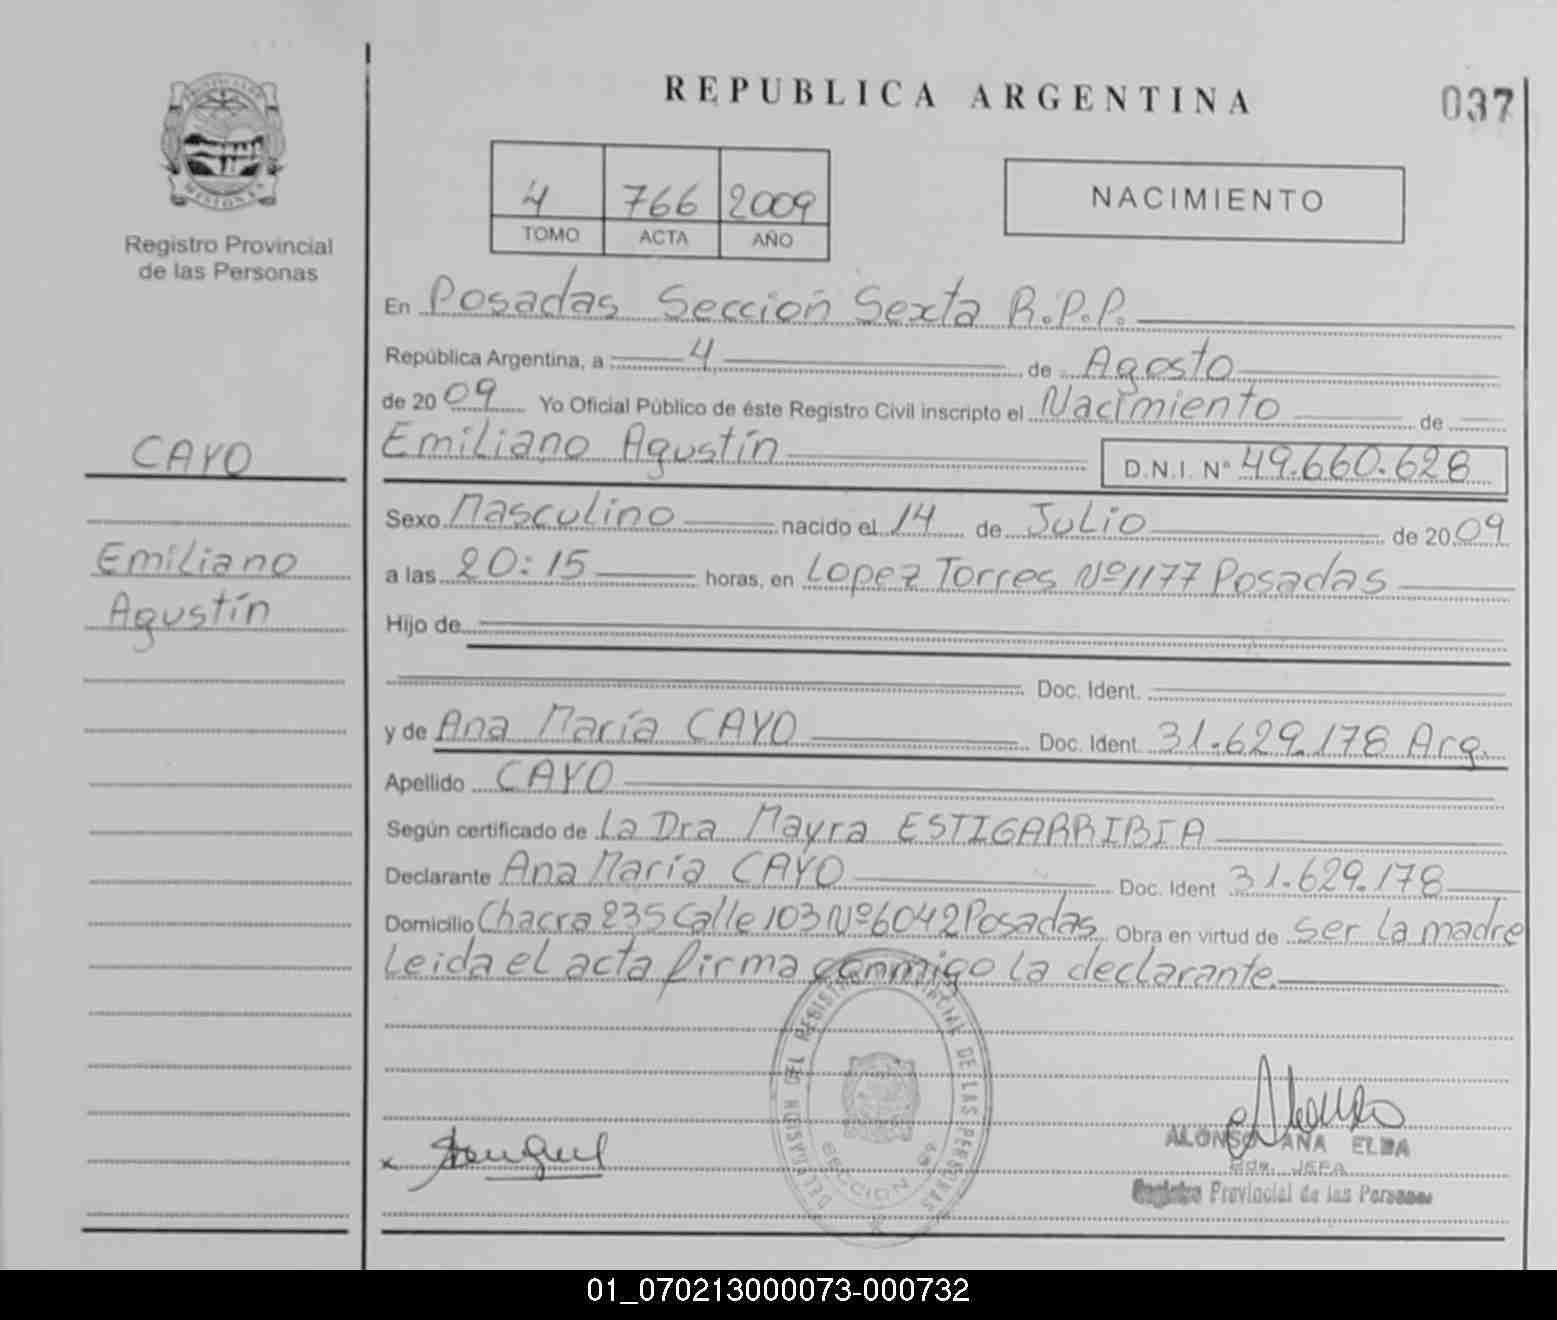 REPUBLICA ARGENTINA
037
PROVINCIA DE
MISIONES
Registro Provincial
de las Personas
4 766 2009
TOMO ACTA AÑO
NACIMIENTO
En Posadas Sección Sexta R.P.P.
República Argentina, a 4 de Agosto
de 2009 Yo Oficial Público de éste Registro Civil inscripto el Nacimiento de
CAYO
Emiliano Agustín D.N.I. Nº 49.660.628
Sexo Masculino nacido el 14 de Julio de 2009
Emiliano
a las 20:15 horas, en Lopez Torres Nº 1177 Posadas
Agustín
Hijo de
Doc. Ident.
y de Ana María CAYO Doc. Ident. 31.629.178 Arg.
Apellido CAYO
Según certificado de La Dra Mayra ESTIGARRIBIA
Declarante Ana María CAYO Doc. Ident 31.629.178
Domicilio Chacra 235 Calle 103 Nº 6042 Posadas Obra en virtud de ser la madre
Leida el acta firma conmigo la declarante.
DEL REGISTRO PROVINCIAL DE LAS PERSONAS
SECCION 6ª
x
ALONSO ANA ELBA
JEFA
Registro Provincial de las Personas
01_070213000073-000732